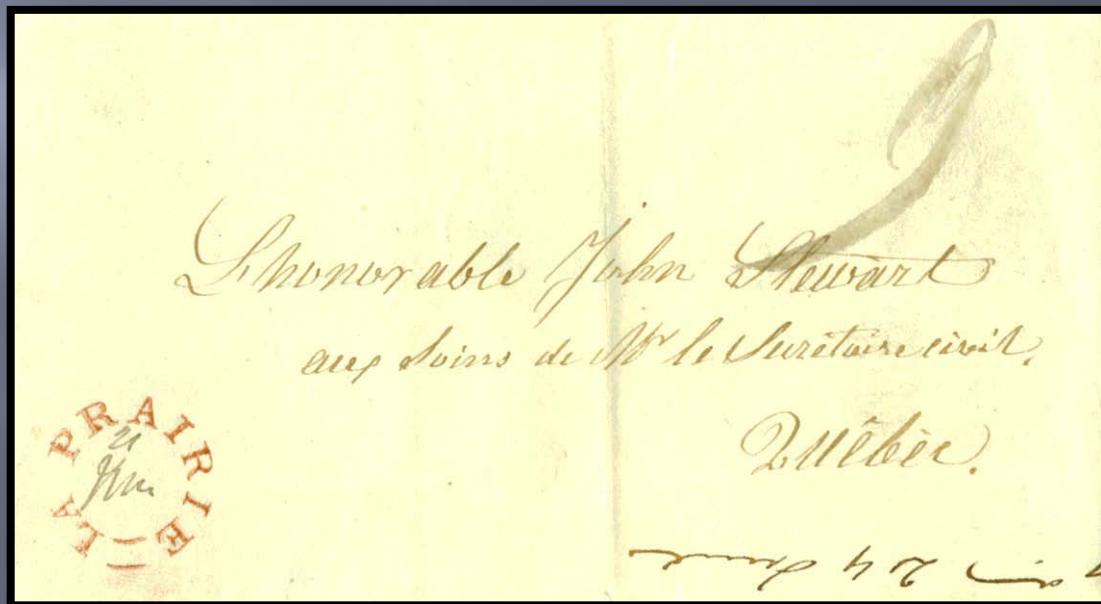 9
L'honorable John Stewart
aux soins de Mr le Secrétaire civil.
Québec.
LA PRAIRIE
21
24